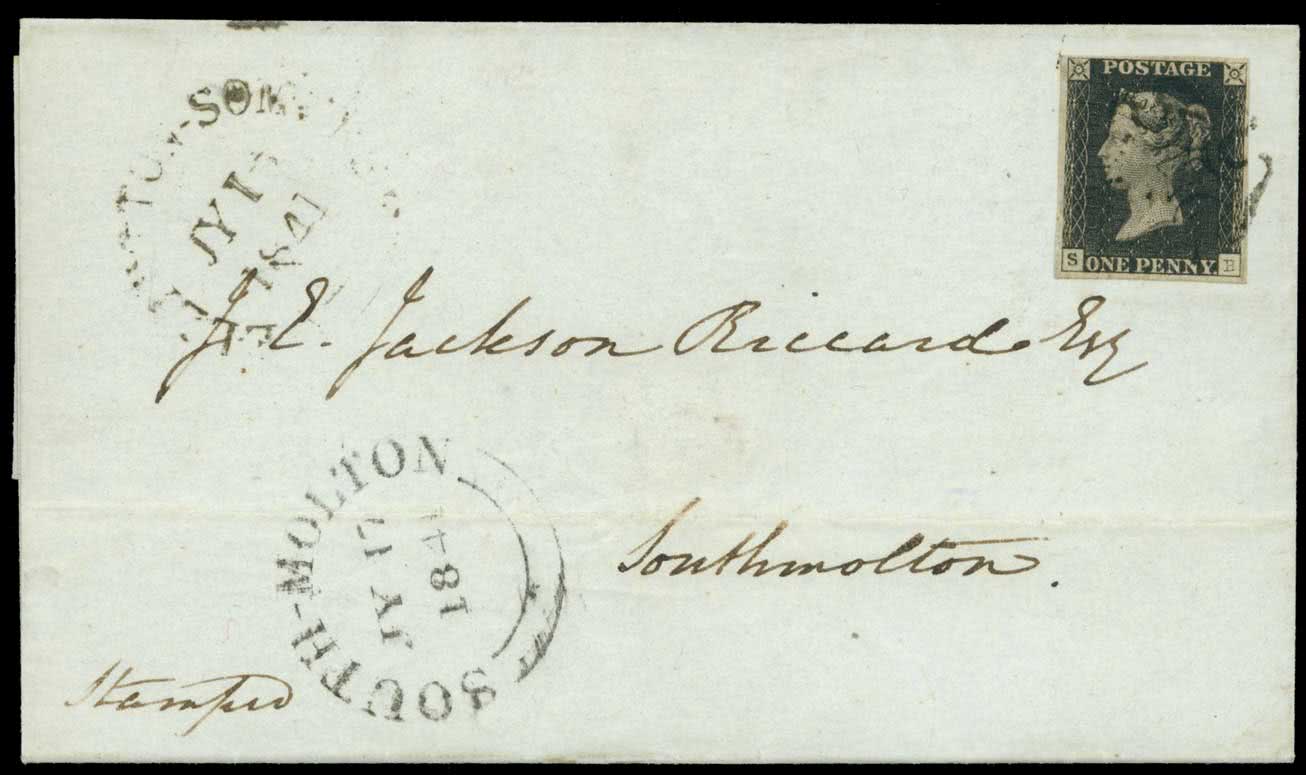 POSTAGE
S ONE PENNY. E
JY 1
1841
J. E. Jackson Riccard Esq
SOUTH-MOLTON
JY 17
1841
Southmolton.
Stamped